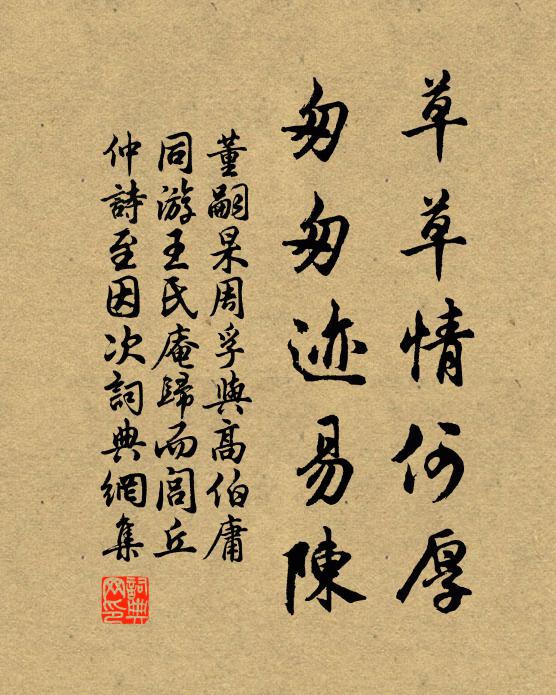 草草情何厚
匆匆迹易陳
董嗣杲周孚與高伯庸
同游王氏庵歸而閭丘
仲詩至因次詞典網集
詞典網印